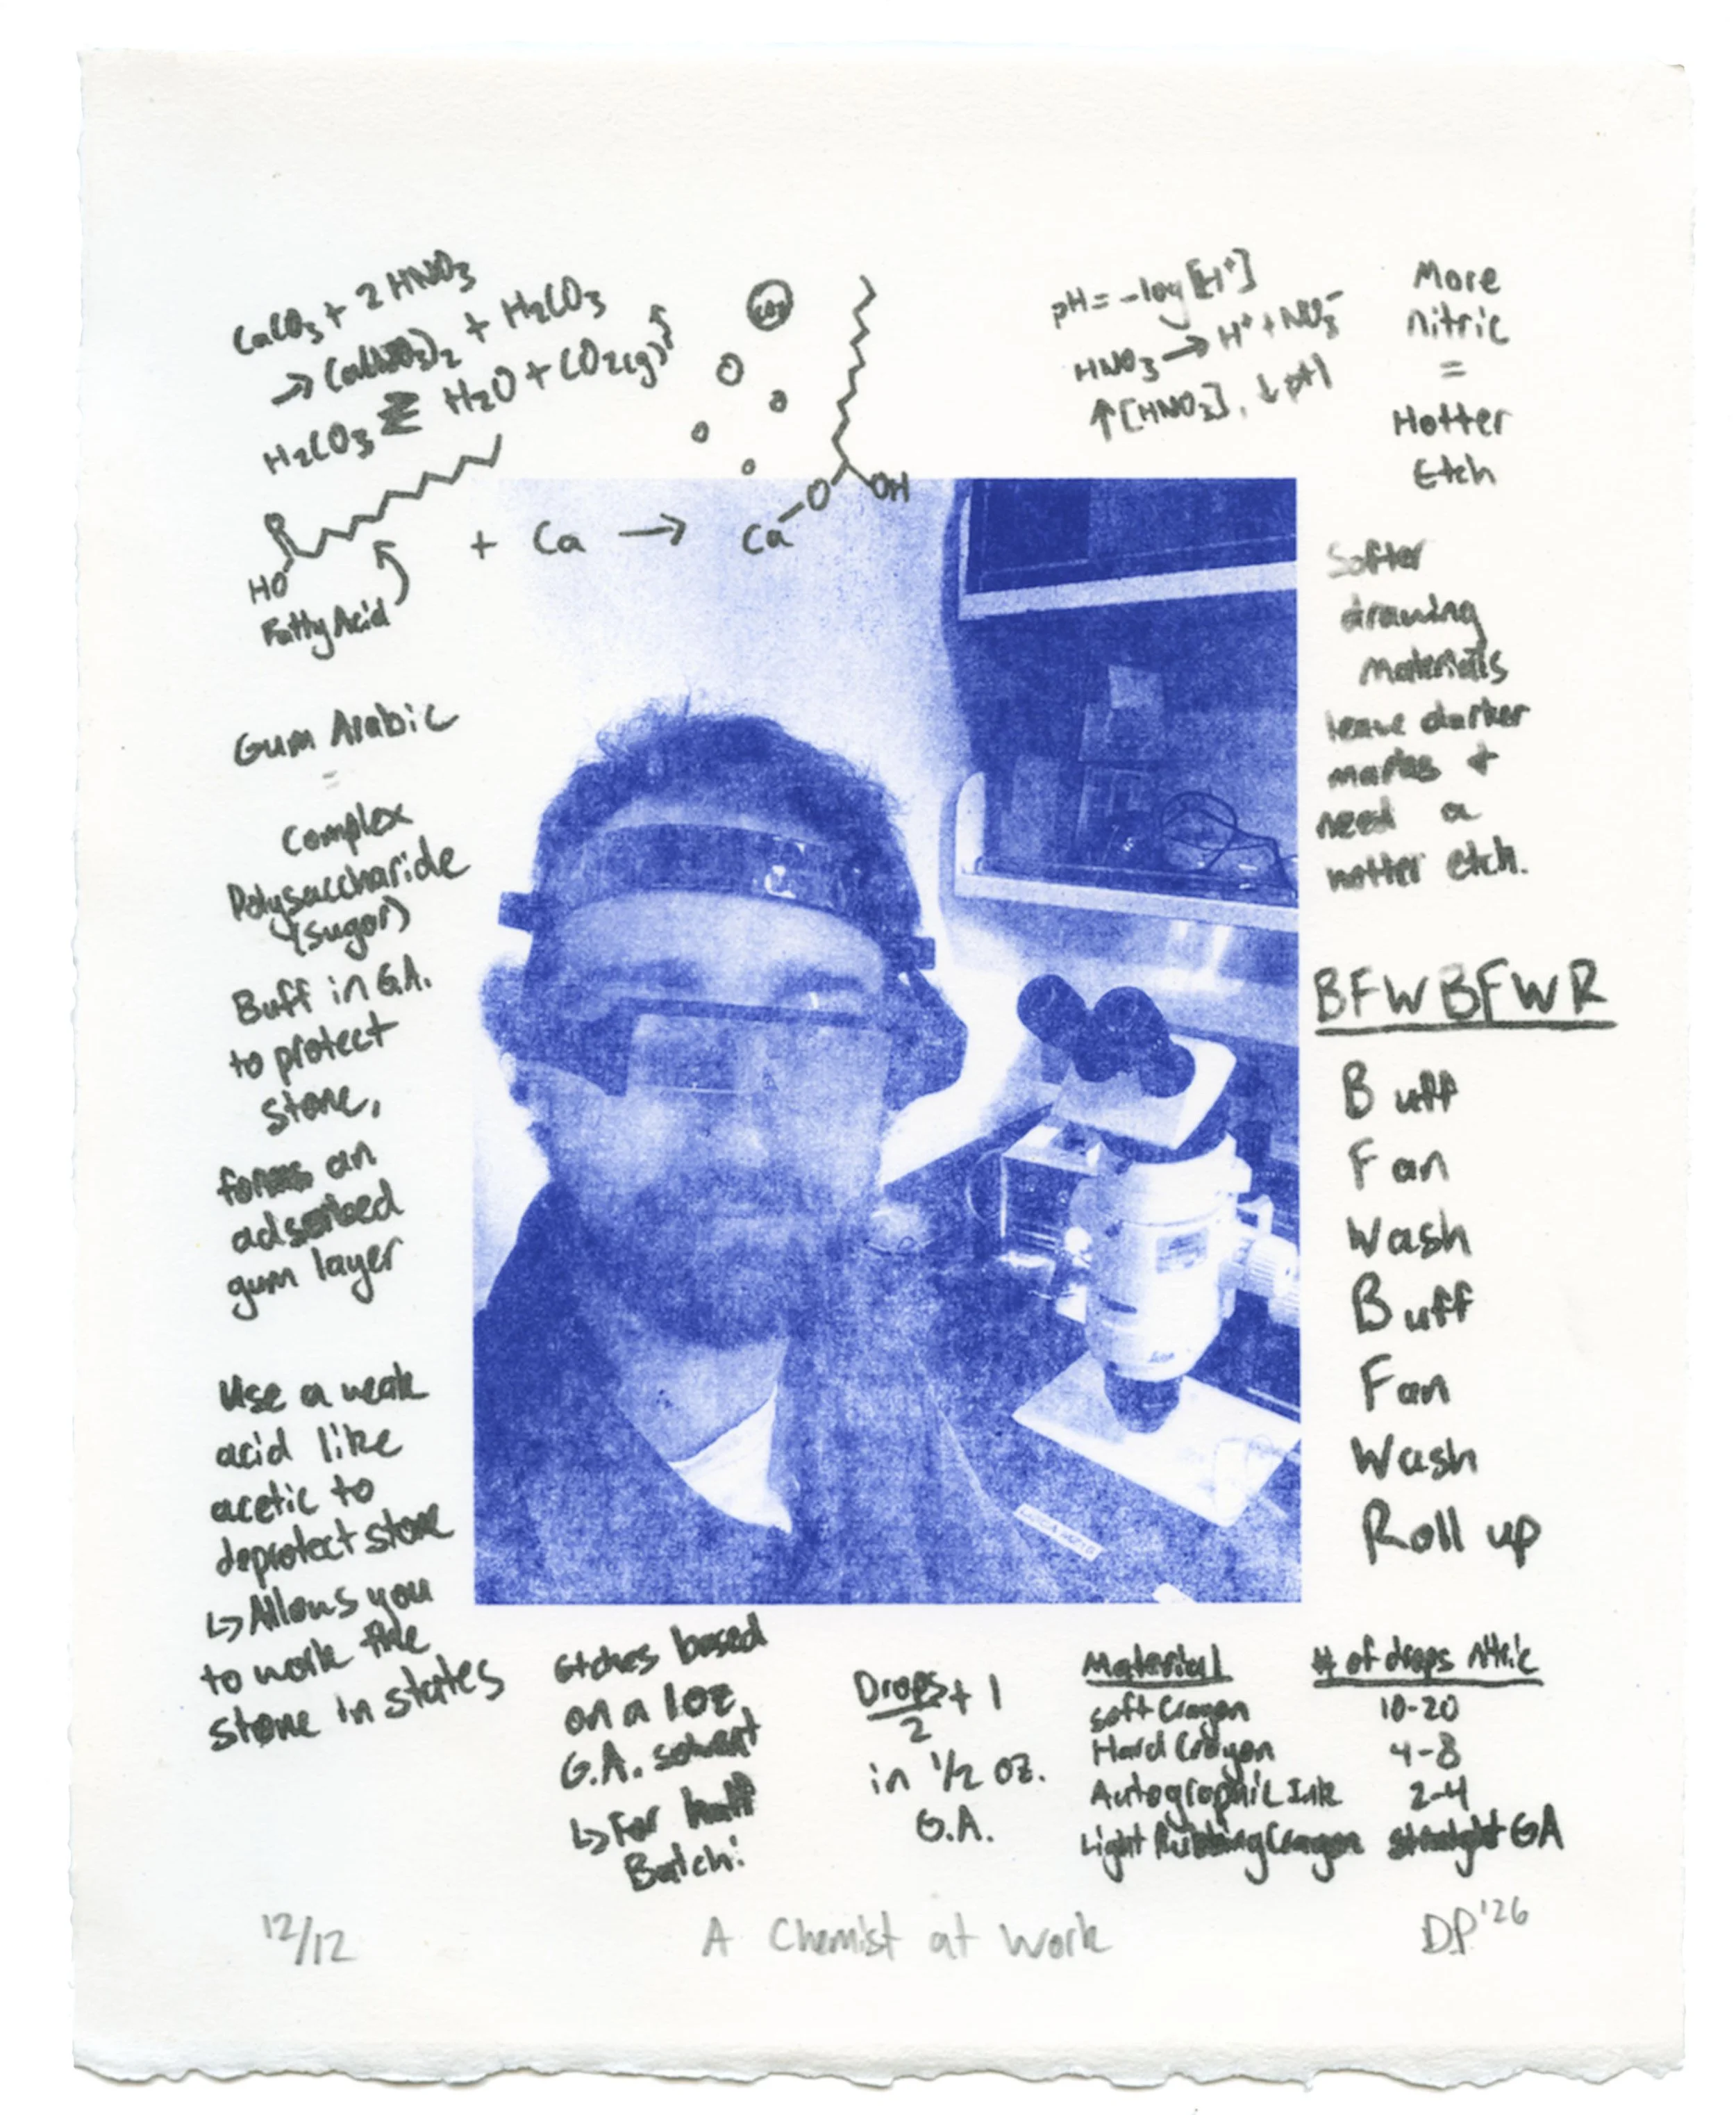 CaCO3 + 2 HNO3
→ Ca(NO3)2 + H2CO3
H2CO3 ⇄ H2O + CO2(g)
CO2
HO
Fatty Acid
+ Ca →
Ca O OH
pH = -log[H+]
HNO3 → H+ + NO3-
↑[HNO3], ↓pH
More
nitric
=
Hotter
Etch
Softer
drawing
materials
leave darker
marks +
need a
hotter etch.
BFWBFWR
Buff
Fan
Wash
Buff
Fan
Wash
Roll up
Gum Arabic
=
Complex
Polysaccharide
(sugar)
Buff in G.A.
to protect
stone,
forms an
adsorbed
gum layer
Use a weak
acid like
acetic to
deprotect stone
↳ Allows you
to work the
stone in states
Etches based
on a 1oz
G.A. solvent
↳ For half
Batch:
Drops/2 + 1
in 1/2 oz.
G.A.
Material # of drops Nitric
Soft Crayon 10-20
Hard Crayon 4-8
Autographic Ink 2-4
Light Rubbing Crayon straight GA
12/12 A Chemist at Work DP '26